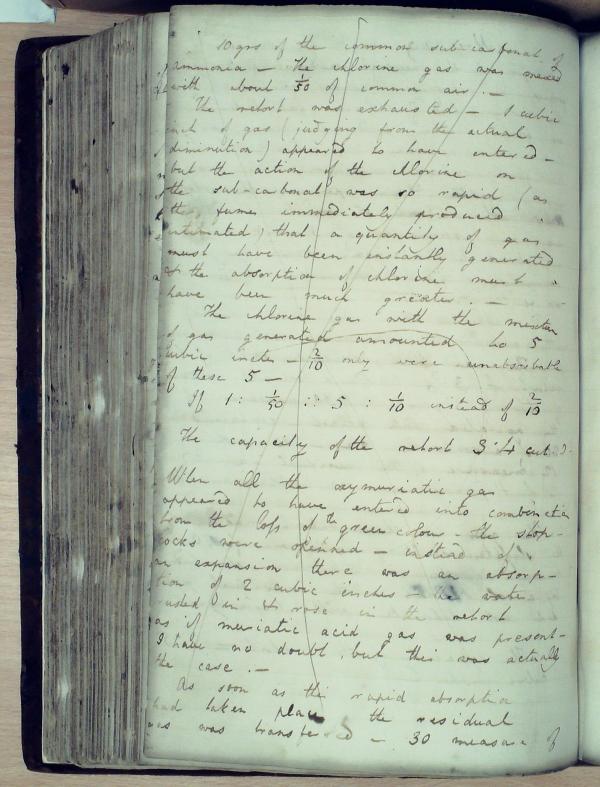 10 grs of the common sub-carbonat of
ammonia - The chlorine gas was mixed
with about 1/50 of common air. -
The retort was exhausted - 1 cubic
inch of gas (judging from the actual
diminution) appeared to have entered -
but the action of the chlorine on
the sub-carbonat was so rapid (as
the fumes immediately produced
intimated) that a quantity of gas
must have been instantly generated
& the absorption of chlorine must
have been much greater. -
The chlorine gas with the mixture
of gas generated amounted to 5
cubic inches - 2/10 only were unabsorbable
of these 5 -
If 1 : 1/50 :: 5 : 1/10 instead of 2/10
The capacity of the retort 3.4 cub
When all the oxymuriatic gas
appeared to have entered into combination
from the loss of the green colour - the stop-
cocks were openned - instead of
an expansion there was an absorp-
tion of 2 cubic inches - the water
rushed in & rose in the retort
as if muriatic acid gas was present -
I have no doubt, but this was actually
the case. -
As soon as the rapid absorption
had taken place the residual
gas was transferred - 30 measure of